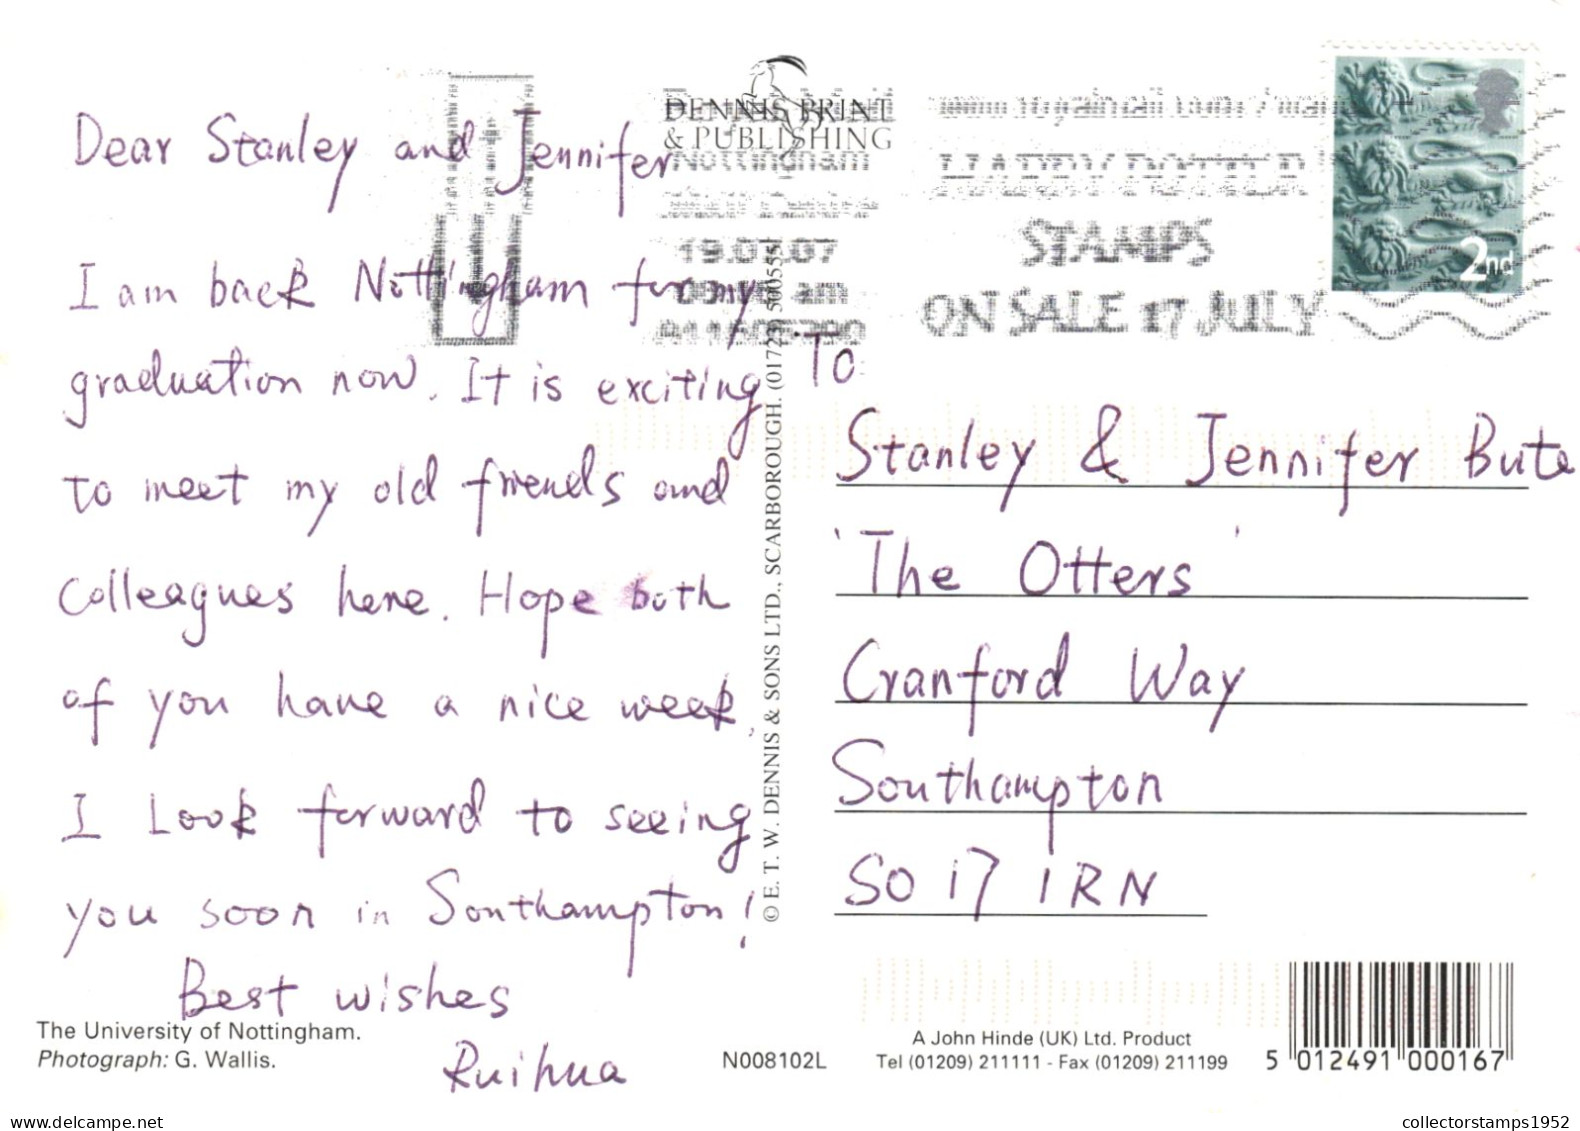 Dear Stanley and Jennifer
I am back Nottingham for my
graduation now. It is exciting
to meet my old friends and
colleagues here. Hope both
of you have a nice week,
I Look forward to seeing
you soon in Southampton!
Best wishes
Ruihua
The University of Nottingham.
Photograph: G. Wallis.
DENNIS PRINT
& PUBLISHING
Nottingham
19.07.07
HARRY POTTER
STAMPS
ON SALE 17 JULY
2nd
© E. T. W. DENNIS & SONS LTD., SCARBOROUGH. (01723) 500555
To
Stanley & Jennifer Bute
'The Otters'
Cranford Way
Southampton
SO 17 1RN
N008102L
A John Hinde (UK) Ltd. Product
Tel (01209) 211111 - Fax (01209) 211199
5 012491 000167
www.delcampe.net
collectorstamps1952